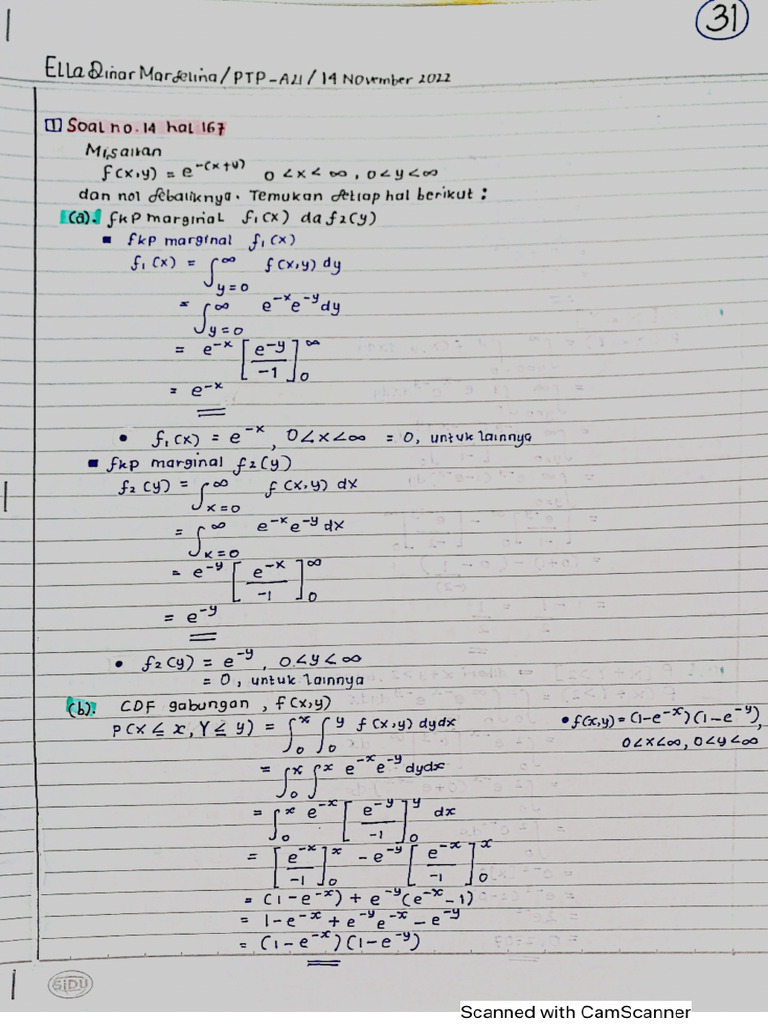 31
Ella Dinar Mardelina / PTP-A21 / 14 November 2022
1 Soal no. 14 hal 167
Misalkan
f(x,y) = e^-(x+y) 0 < x < ∞, 0 < y < ∞
dan nol sebaliknya. Temukan setiap hal berikut :
(a). fkp marginal f₁(x) da f₂(y)
▪ fkp marginal f₁(x)
f₁(x) = ∫_{y=0}^∞ f(x,y) dy
= ∫_{y=0}^∞ e^-x e^-y dy
= e^-x [e^-y / -1]_0^∞
= e^-x
• f₁(x) = e^-x, 0<x<∞ = 0, untuk lainnya
▪ fkp marginal f₂(y)
f₂(y) = ∫_{x=0}^∞ f(x,y) dx
= ∫_{x=0}^∞ e^-x e^-y dx
= e^-y [e^-x / -1]_0^∞
= e^-y
• f₂(y) = e^-y, 0<y<∞
= 0, untuk lainnya
(b). CDF gabungan, f(x,y)
P(X ≤ x, Y ≤ y) = ∫_0^x ∫_0^y f(x,y) dydx
• f(x,y) = (1-e^-x)(1-e^-y),
0<x<∞, 0<y<∞
= ∫_0^x ∫_0^x e^-x e^-y dydx
= ∫_0^x e^-x [e^-y / -1]_0^y dx
= [e^-x / -1]_0^x - e^-y [e^-x / -1]_0^x
= (1-e^-x) + e^-y (e^-x - 1)
= 1-e^-x + e^-y e^-x - e^-y
= (1-e^-x)(1-e^-y)
SiDU
Scanned with CamScanner